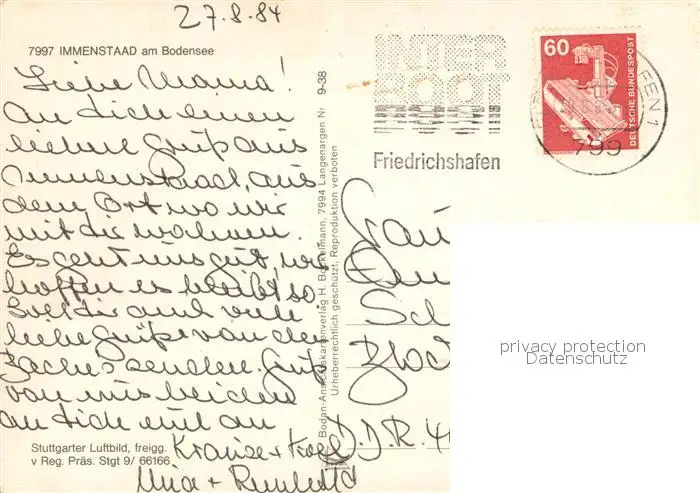 27.8.84
7997 IMMENSTAAD am Bodensee
Liebe Mama!
An dich einen
lieben Gruß aus
Immenstaad, aus
dem Ort wo wir
mit dir wohnen.
Es geht uns gut, wir
hoffen es bleibt so.
Soll dir auch viele
liebe Grüße von der
senden. Gruß
von uns beiden
an dich und an
Mia +
Stuttgarter Luftbild, freigg.
v Reg. Präs. Stgt 9/ 66166
9-38
Bodan-Ansichtskartenverlag H. Bockelmann, 7994 Langenargen Nr
Urheberrechtlich geschützt, Reproduktion verboten
INTER
BOOT
Friedrichshafen
60
DEUTSCHE BUNDESPOST
FEN 1
799
Frau
Sch
D.D.R. 4
privacy protection
Datenschutz